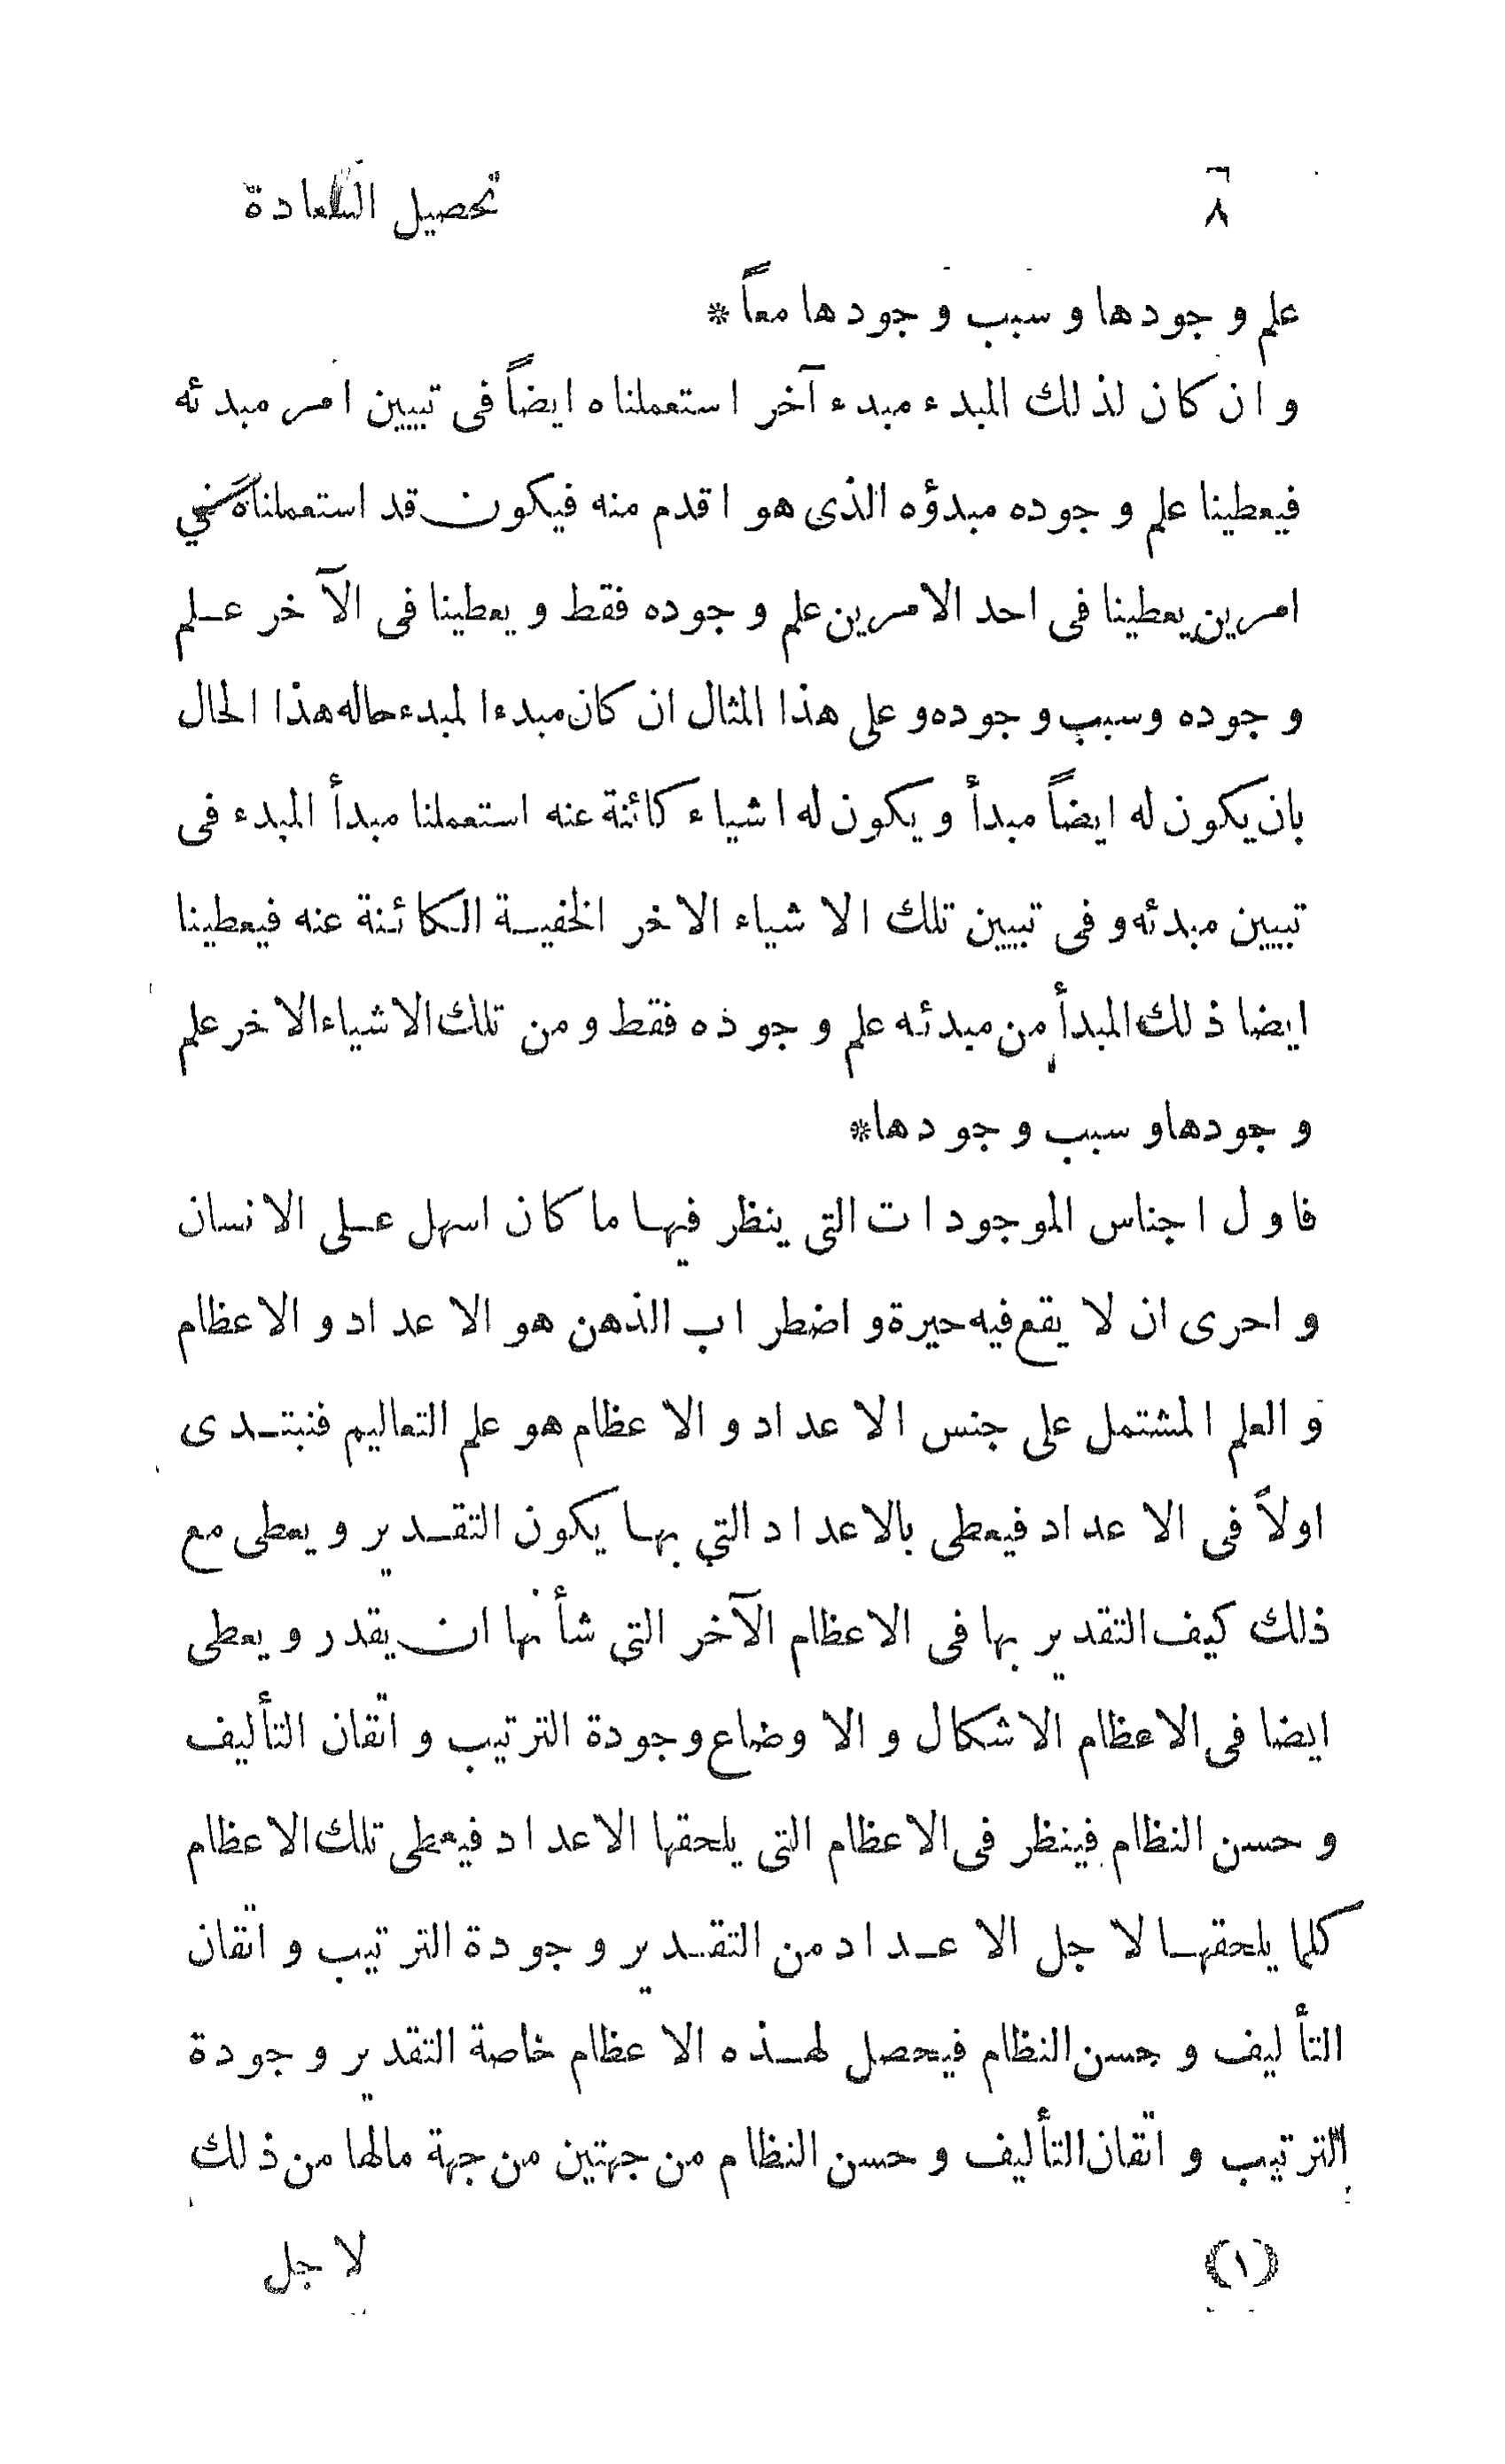 ٨ تحصيل السعادة
علم وجودها وسبب وجودها معاً*
وان كان لذلك المبدء مبدء آخر استعملناه ايضاً فى تبيين امر مبدئه
فيعطينا علم وجوده مبدؤه الذى هو اقدم منه فيكون قد استعملناه فى
امرين يعطينا فى احد الامرين علم وجوده فقط ويعطينا فى الآخر علم
وجوده وسبب وجوده وعلى هذا المثال ان كان مبدءا لمبدء حاله هذا الحال
بان يكون له ايضاً مبدأ ويكون له اشياء كائنة عنه استعملنا مبدأ المبدء فى
تبيين مبدئه وفى تبيين تلك الاشياء الاخر الخفية الكائنة عنه فيعطينا
ايضا ذلك المبدأ من مبدئه علم وجوذه فقط ومن تلك الاشياء الاخر علم
وجودها وسبب وجودها*
فاول اجناس الموجودات التى ينظر فيها ما كان اسهل على الانسان
واحرى ان لا يقع فيه حيرة واضطراب الذهن هو الاعداد والاعظام
والعلم المشتمل على جنس الاعداد والاعظام هو علم التعاليم فنبتدى
اولاً فى الاعداد فيعطى بالاعداد التي بها يكون التقدير ويعطى مع
ذلك كيف التقدير بها فى الاعظام الآخر التى شأنها ان يقدر ويعطى
ايضا فى الاعظام الاشكال والاوضاع وجودة الترتيب واتقان التأليف
وحسن النظام فينظر فى الاعظام التى يلحقها الاعداد فيعطى تلك الاعظام
كلما يلحقها لاجل الاعداد من التقدير وجودة الترتيب واتقان
التأليف وجسن النظام فيحصل لهذه الاعظام خاصة التقدير وجودة
الترتيب واتقان التأليف وحسن النظام من جهتين من جهة مالها من ذلك
(١) لاجل